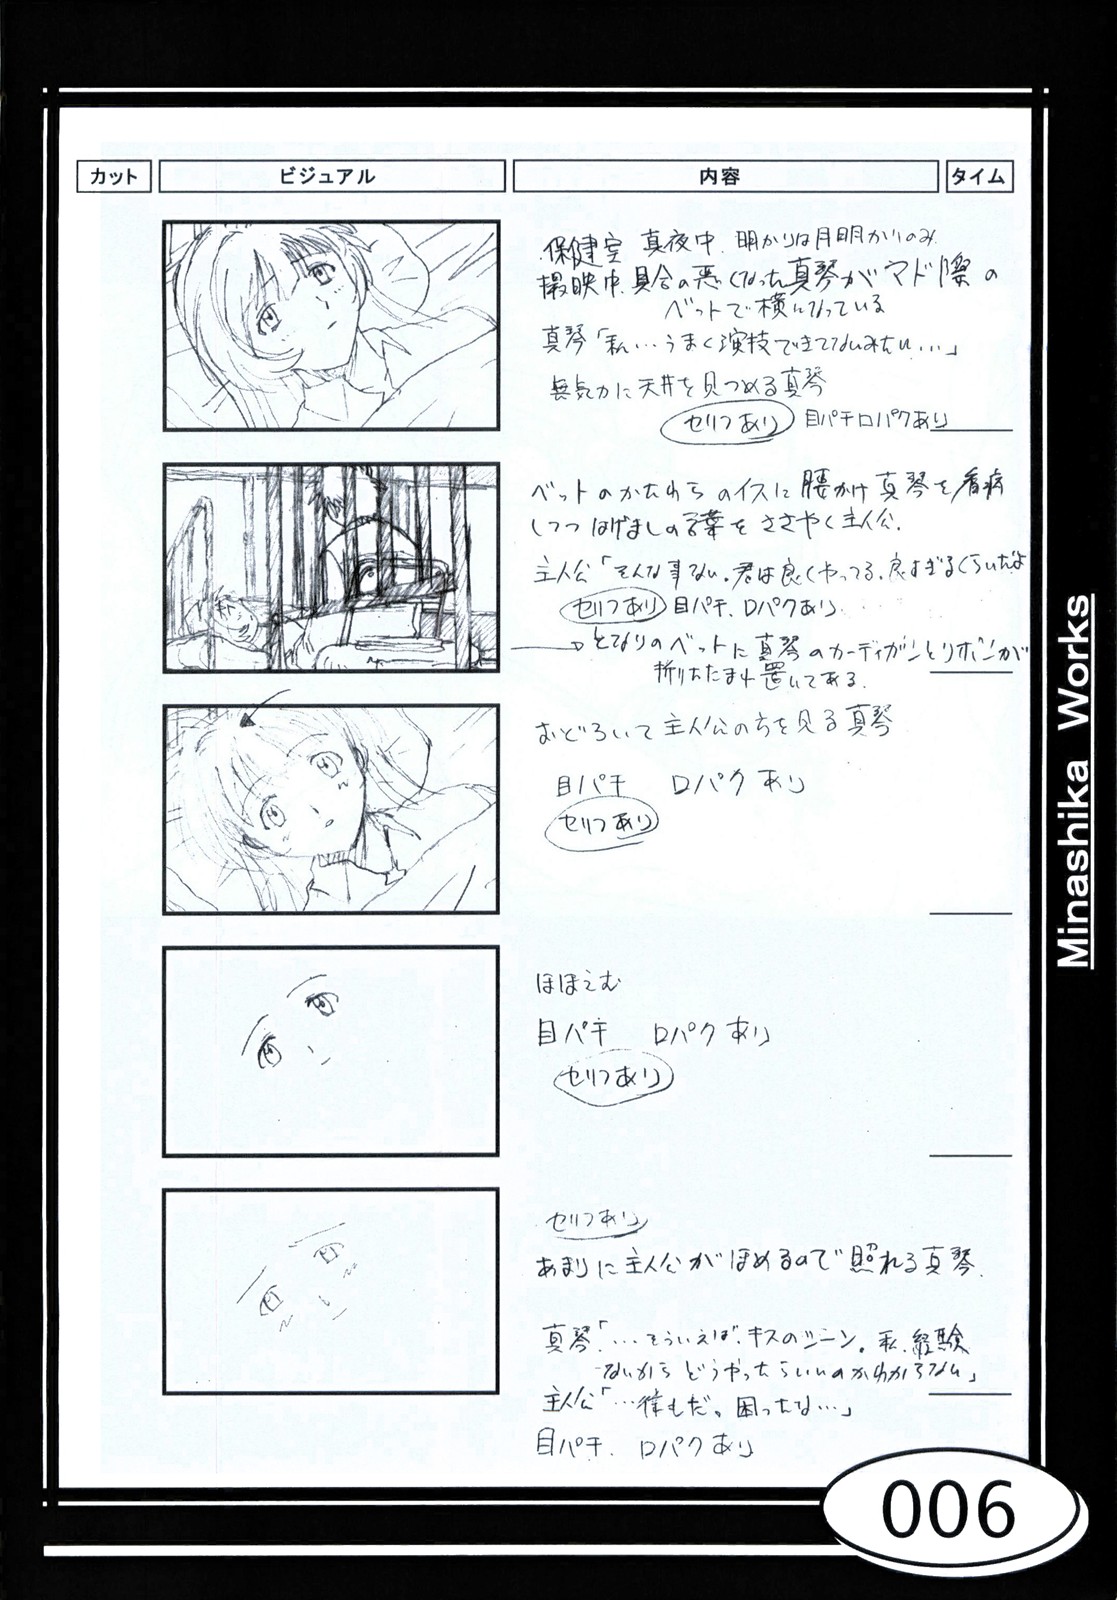 カット ビジュアル 内容 タイム
保健室 真夜中. 明かりは月明かりのみ
撮映中、具合の悪くなった真琴がマド際の
ベットで横になっている
真琴「私…うまく演技できてないみたい…」
無気力に天井を見つめる真琴
セリフあり 目パチ口パクあり
ベットのかたわらのイスに腰かけ真琴を看病
しつつはげましの言葉をささやく主人公.
主人公「そんな事ない。君は良くやってる、良すぎるくらいだよ
セリフあり 目パチ、口パクあり
→となりのベットに真琴のカーディガンとリボンが
折りたたまれ置いてある.
おどろいて主人公の方を見る真琴
目パチ 口パクあり
セリフあり
ほほえむ
目パチ 口パクあり
セリフあり
セリフあり
あまりに主人公がほめるので照れる真琴.
真琴「…そういえば、キスのシーン。私、経験
ないからどうやったらいいのかわからない」
主人公「…僕もだ。困ったな…」
目パチ、口パクあり
Minashika Works
006